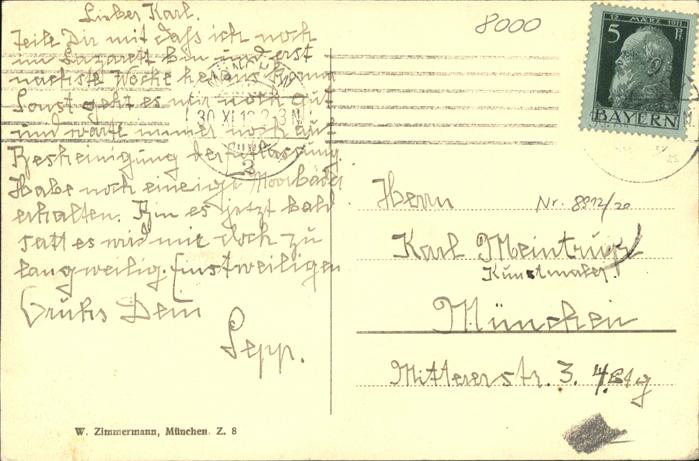 Lieber Karl.
Teile Dir mit daß ich noch
im Lazarett bin und erst
nächste Woche heraus
Sonst geht es mir noch gut
und warte immer noch auf
Bescheinigung der
Habe noch einige Moorbäder
erhalten. Bin es jetzt bald
satt es wird mir doch zu
langweilig. Einstweiligen
Gruß Dein
Sepp.
W. Zimmermann, München. Z. 8
8000
12. MÄRZ 1911
5 Pf
BAYERN
30 XI
2-3 N
2
Herrn
Nr. 8912/20
Karl Meintrup
Kunstmaler
München
Mittererstr. 3. 4. Etg